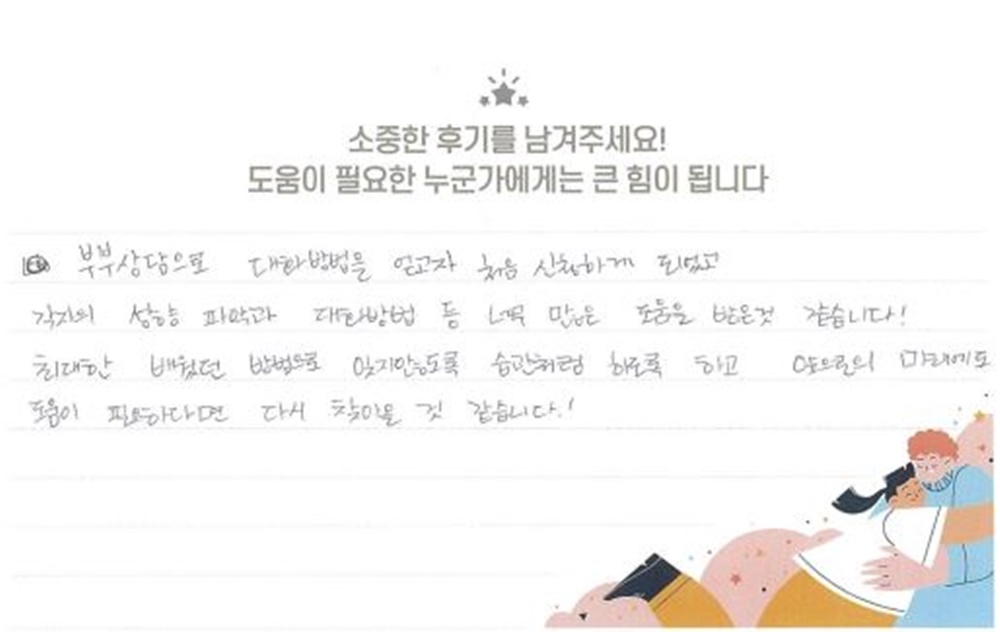 소중한 후기를 남겨주세요!
도움이 필요한 누군가에게는 큰 힘이 됩니다
부부상담으로 대화방법을 얻고자 처음 신청하게 되었고
각자의 성향 파악과 대화방법 등 너무 많은 도움을 받은것 같습니다!
최대한 배웠던 방법으로 잊지않도록 습관처럼 하도록 하고 앞으로의 미래에도
도움이 필요하다면 다시 찾아올 것 같습니다.!